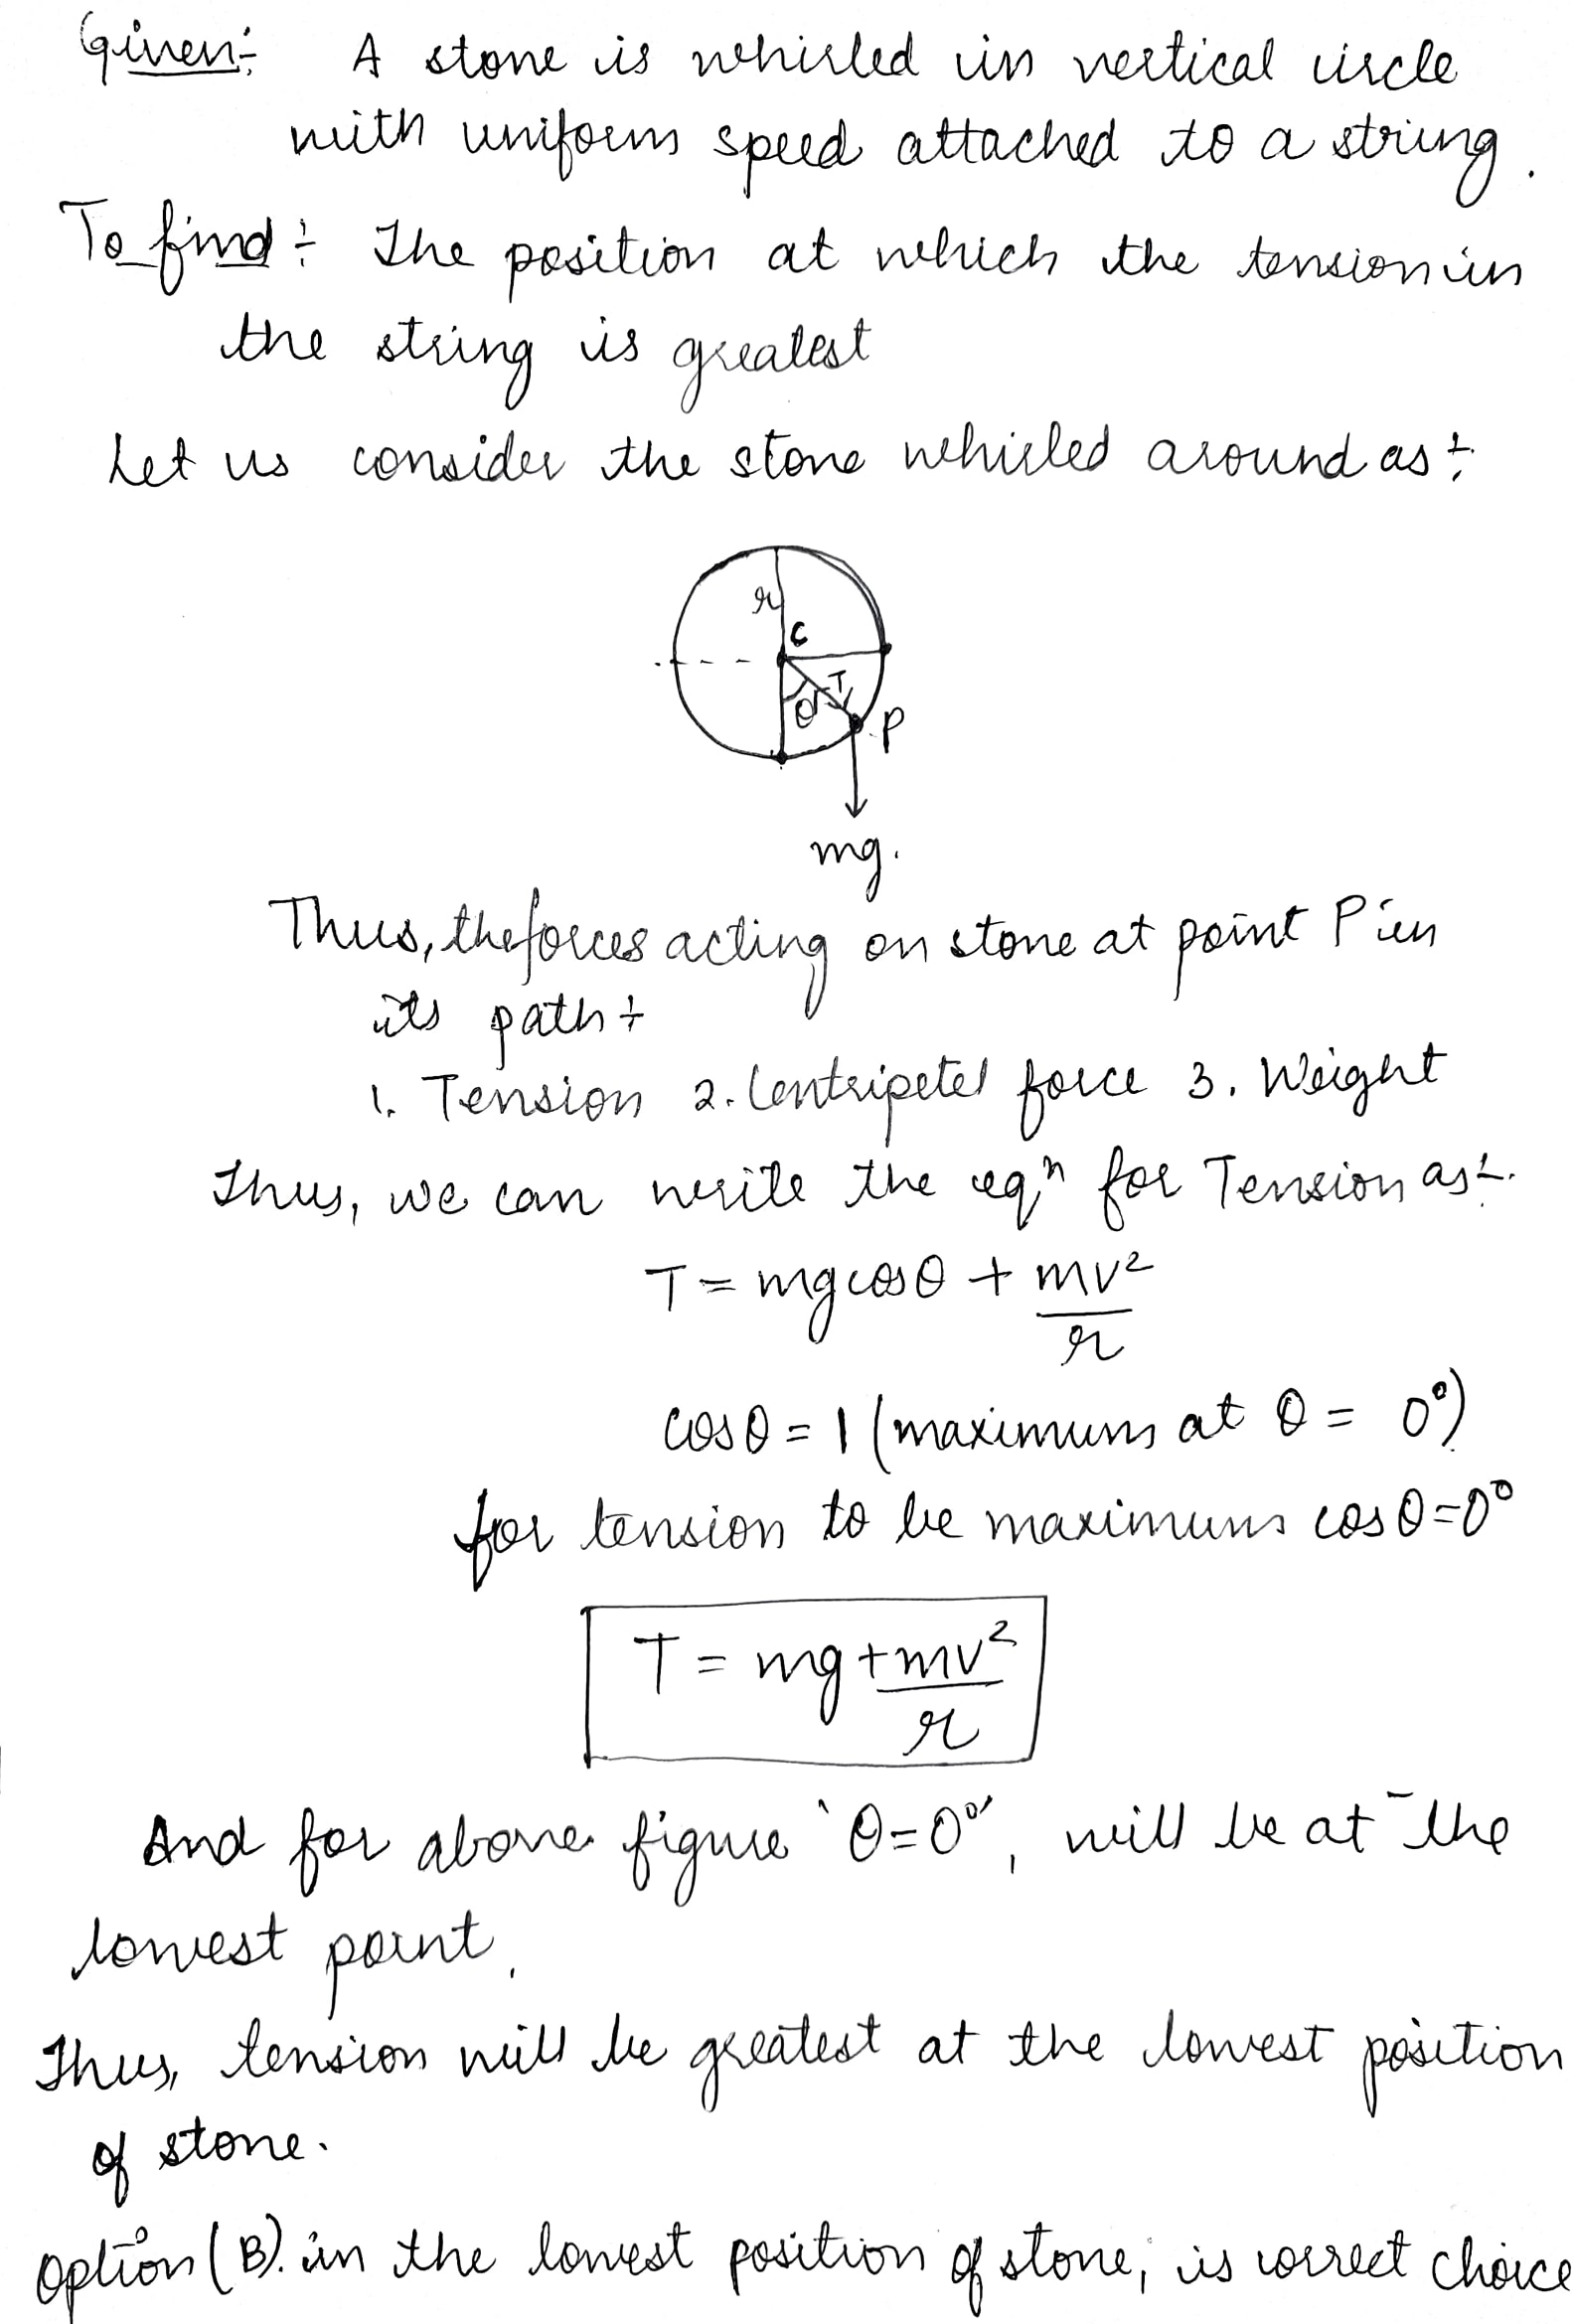 Given:-    A stone is whirled in vertical circle
with uniform speed attached to a string.
To find:- The position at which the tension in
the string is greatest
Let us consider the stone whirled around as :-
r
C
θ T
P
mg.
Thus, the forces acting on stone at point P in
its path :-
1. Tension 2. Centripetel force 3. Weight
Thus, we can write the eqⁿ for Tension as :-
T = mg cosθ + mv²
r
cosθ = 1 (maximum at θ = 0°)
for tension to be maximum cosθ=0°
T = mg + mv²
r
And for above figure 'θ=0°', will be at the
lowest point.
Thus, tension will be greatest at the lowest position
of stone.
Option (B). in the lowest position of stone, is correct choice